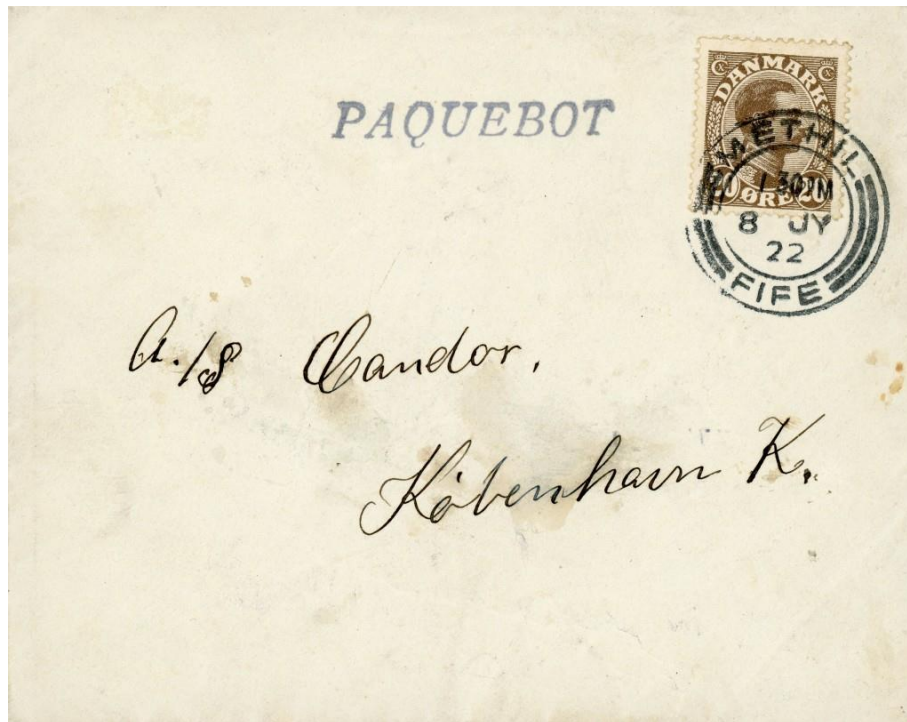 PAQUEBOT
DANMARK
20 ØRE 20
METHIL
1 30PM
8 JY
22
FIFE
A./S Candor,
København K.